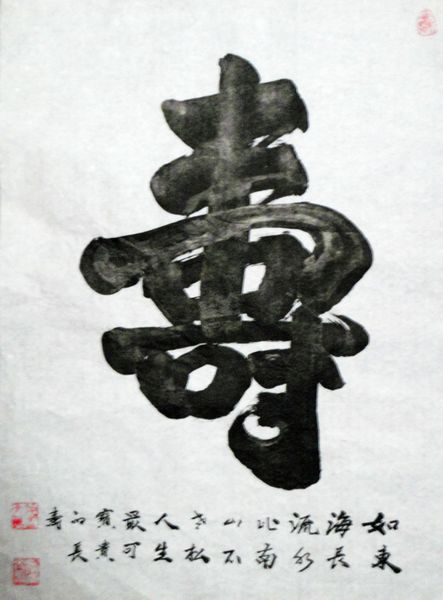 壽
如東
海長
流水
比南
山不
老松
人生
最可
寳貴
的長
壽